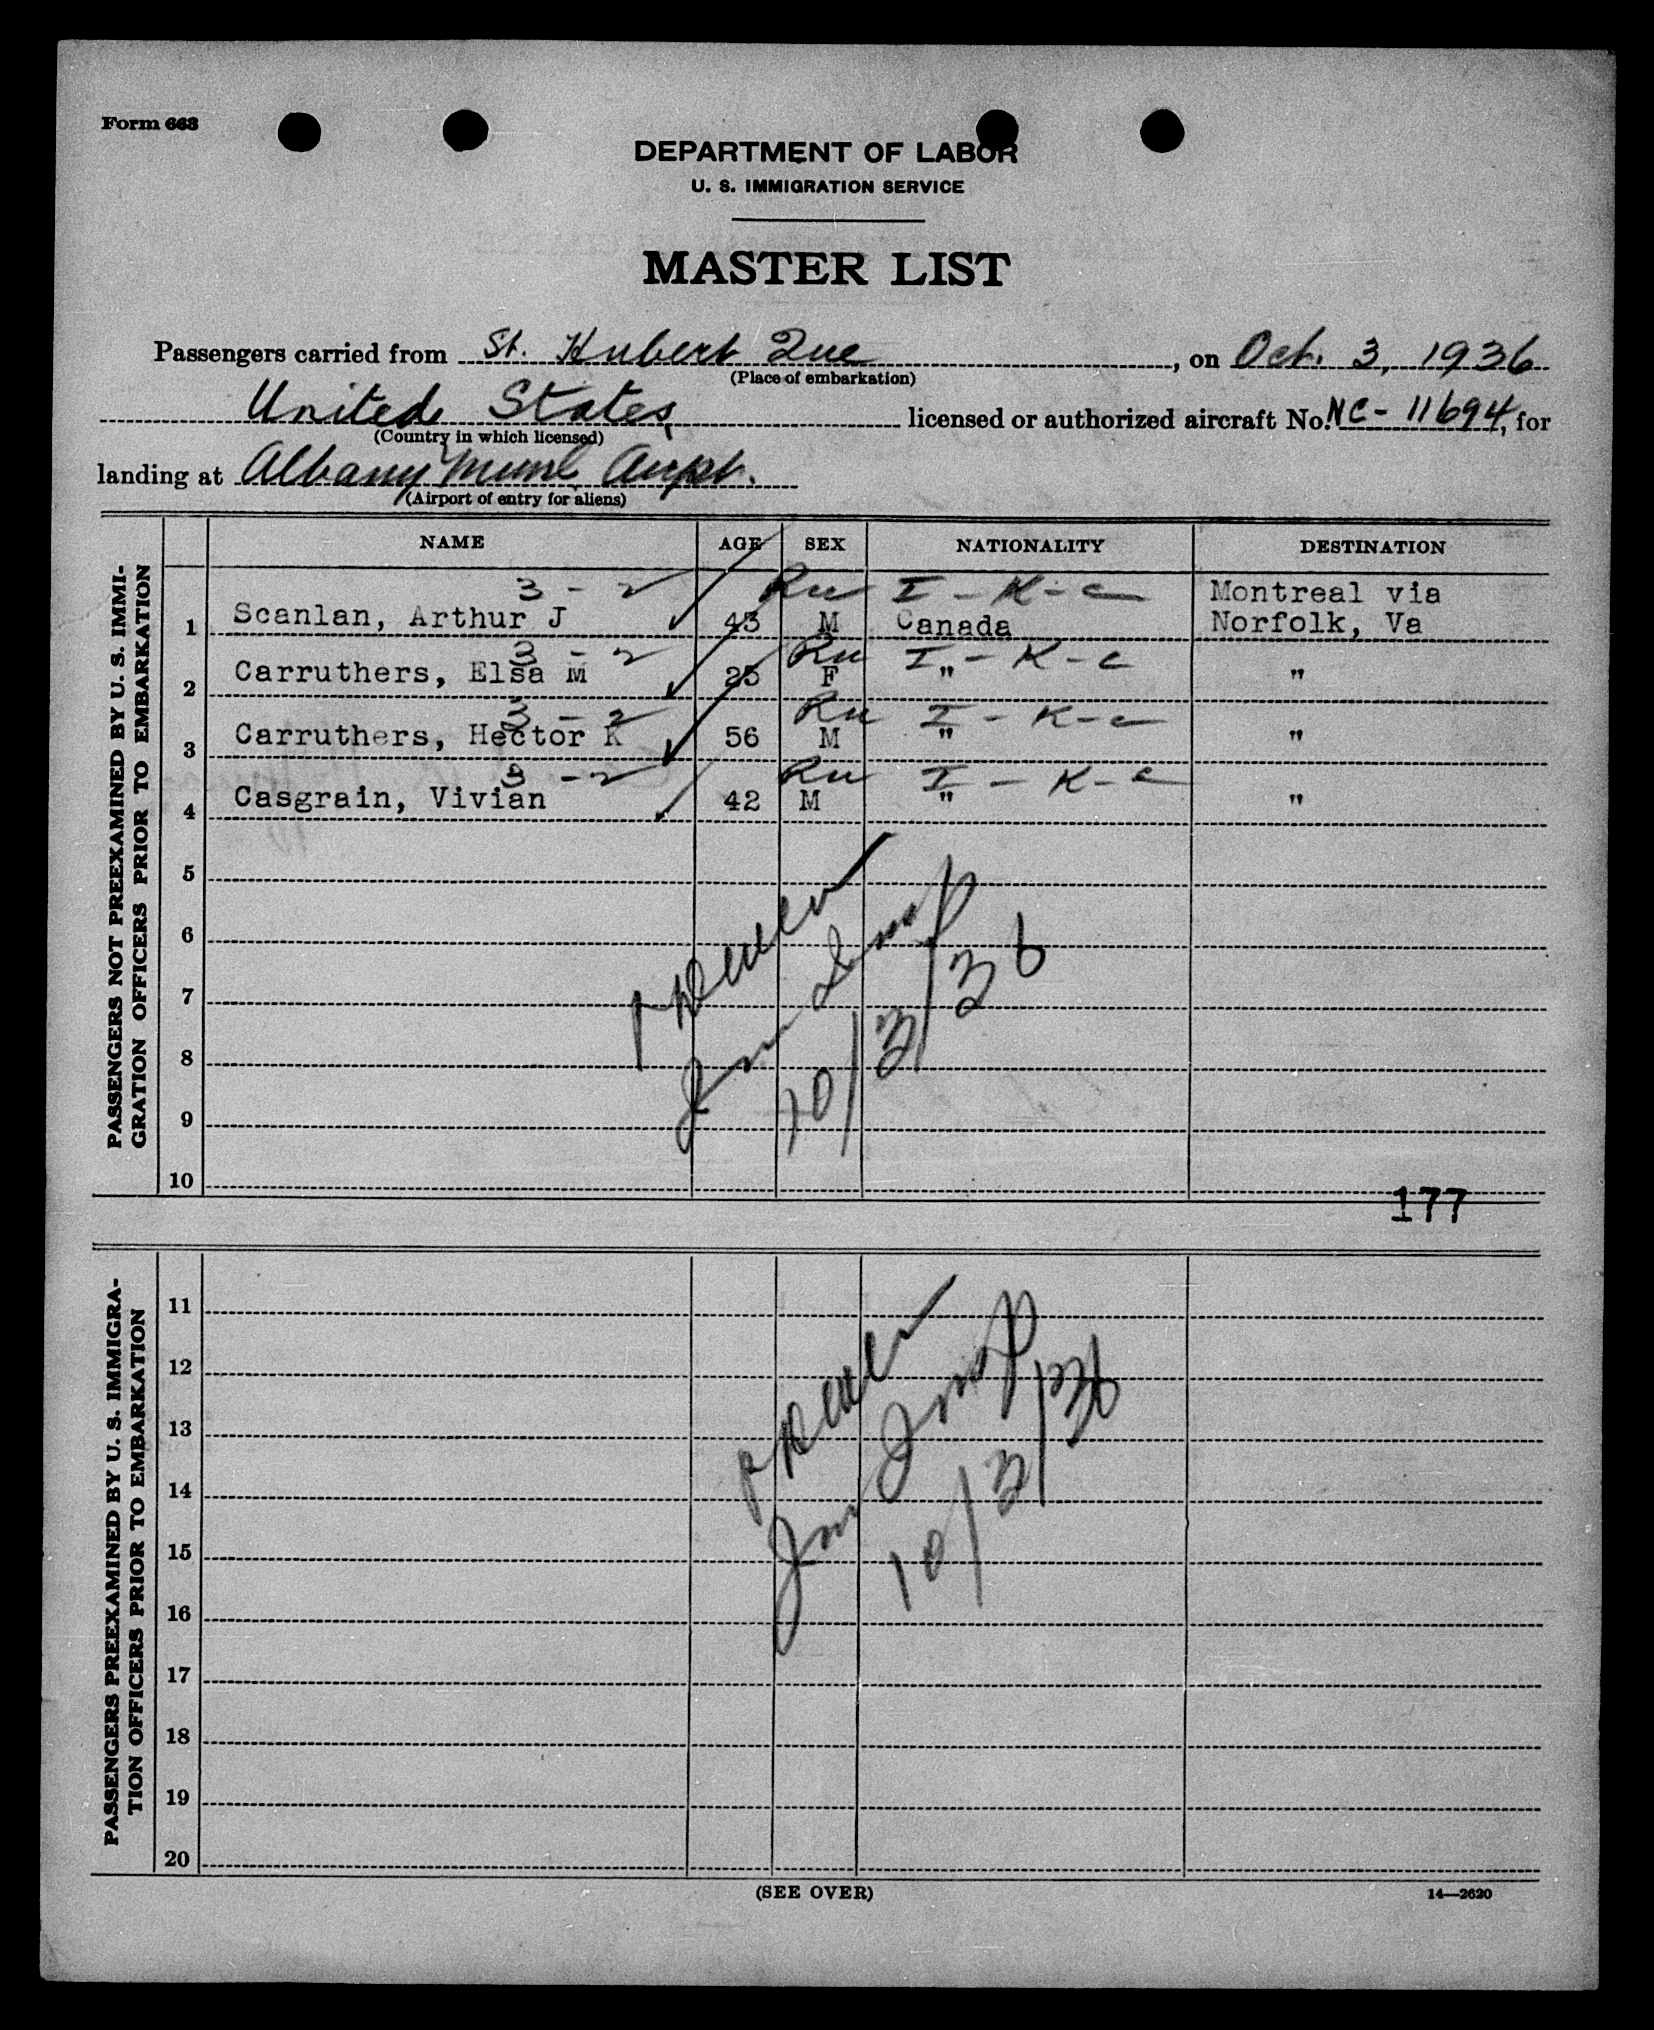 Form 663
DEPARTMENT OF LABOR
U. S. IMMIGRATION SERVICE
MASTER LIST
Passengers carried from St. Hubert Que, on Oct. 3, 1936
(Place of embarkation)
United States licensed or authorized aircraft No. NC-11694, for
(Country in which licensed)
landing at Albany Munl Airpt.
(Airport of entry for aliens)
NAME AGE SEX NATIONALITY DESTINATION
PASSENGERS NOT PREEXAMINED BY U. S. IMMI-
GRATION OFFICERS PRIOR TO EMBARKATION
3 - 2 I - K - c Montreal via
1 Scanlan, Arthur J 43 M Canada Norfolk, Va
3 - 2 I - K - c
2 Carruthers, Elsa M 25 F " "
3 - 2 I - K - c
3 Carruthers, Hector K 56 M " "
3 - 2 I - K - c
4 Casgrain, Vivian 42 M " "
5
6
7
8
9
10
10/3/36
177
PASSENGERS PREEXAMINED BY U. S. IMMIGRA-
TION OFFICERS PRIOR TO EMBARKATION
11
12
13
14
15
16
17
18
19
20
10/3/36
(SEE OVER)
14—2620